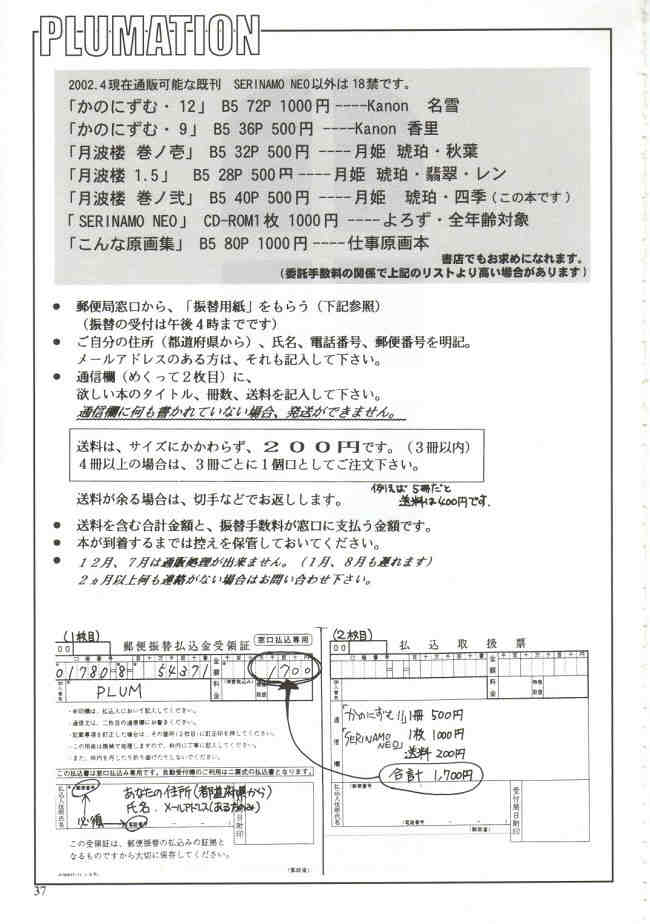 PLUMATION
2002.4現在通販可能な既刊　SERINAMO NEO以外は18禁です。
「かのにずむ・12」 B5 72P 1000円 ----Kanon　名雪
「かのにずむ・9」 B5 36P 500円 ----Kanon 香里
「月波楼 巻ノ壱」 B5 32P 500円 ----月姫 琥珀・秋葉
「月波楼 1.5」 B5 28P 500円 ----月姫 琥珀・翡翠・レン
「月波楼 巻ノ弐」 B5 40P 500円 ----月姫 琥珀・四季(この本です)
「SERINAMO NEO」 CD-ROM1枚 1000円 ----よろず・全年齢対象
「こんな原画集」 B5 80P 1000円----仕事原画本
書店でもお求めになれます。
(委託手数料の関係で上記のリストより高い場合があります)
● 郵便局窓口から、「振替用紙」をもらう（下記参照）
（振替の受付は午後４時までです）
● ご自分の住所（都道府県から）、氏名、電話番号、郵便番号を明記。
メールアドレスのある方は、それも記入して下さい。
● 通信欄（めくって２枚目）に、
欲しい本のタイトル、冊数、送料を記入して下さい。
通信欄に何も書かれていない場合、発送ができません。
送料は、サイズにかかわらず、２００円です。（３冊以内）
４冊以上の場合は、３冊ごとに１個口としてご注文下さい。
送料が余る場合は、切手などでお返しします。
例えば5冊だと
送料は400円です.
● 送料を含む合計金額と、振替手数料が窓口に支払う金額です。
● 本が到着するまでは控えを保管しておいてください。
● １２月、７月は通販処理が出来ません。（１月、８月も遅れます）
２ヵ月以上何も連絡がない場合はお問い合わせ下さい。
(1枚目)
00
郵便振替払込金受領証
窓口払込専用
口座番号
01780=8= 54371
金額
1700
加入者名
PLUM
料金
特殊取扱
・通信文は、二枚目の通信欄にお書きください。
この払込書は窓口払込み専用です。自動受付機のご利用は二票式の払込書となります。
払込人住所氏名
郵便番号
あなたの住所(都道府県から)
氏名. メールアドレス(ある方のみ)
必須
電話番号
日附印
この受領証は、郵便振替の払込みの証拠と
なるものですから大切に保存してください。
(郵政省)
(2枚目)
00
払込取扱票
口座番号
金額
加入者名
料金
特殊取扱
通信欄
「かのにずむ」11冊 500円
「SERINAMO NEO」 1枚 1000円
送料 200円
合計 1,700円
払込人住所氏名
(郵便番号
(電話番号
(郵政省)
受付局日附印
37